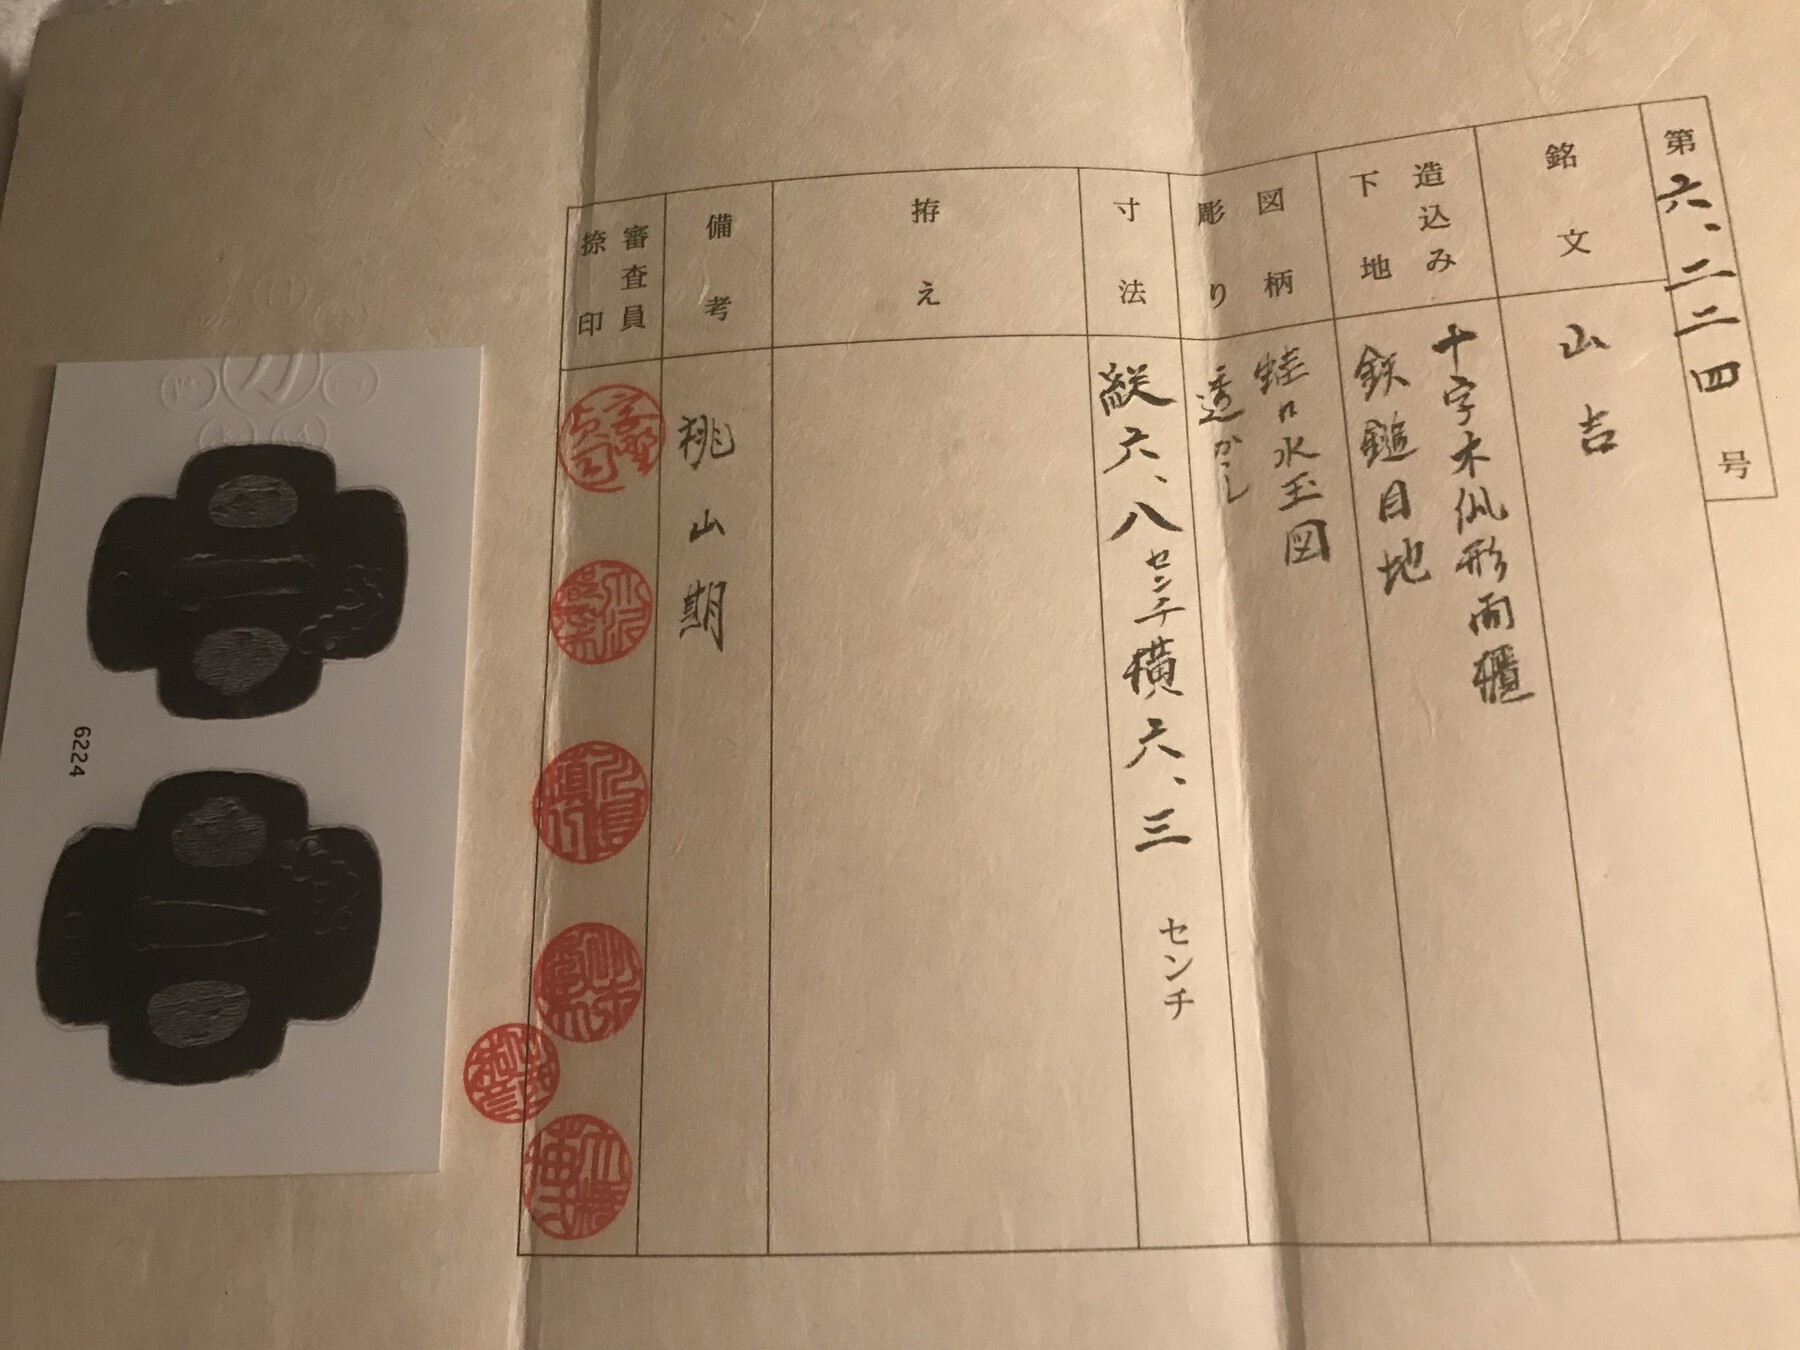 第六、二二四号
銘文
山吉
造込み
下地
十字木瓜形両櫃
鉄鎚目地
図柄
彫り
蛙口水玉図
透かし
寸法
縦六、八センチ横六、三センチ
拵え
備考
桃山期
審査員
捺印
6224